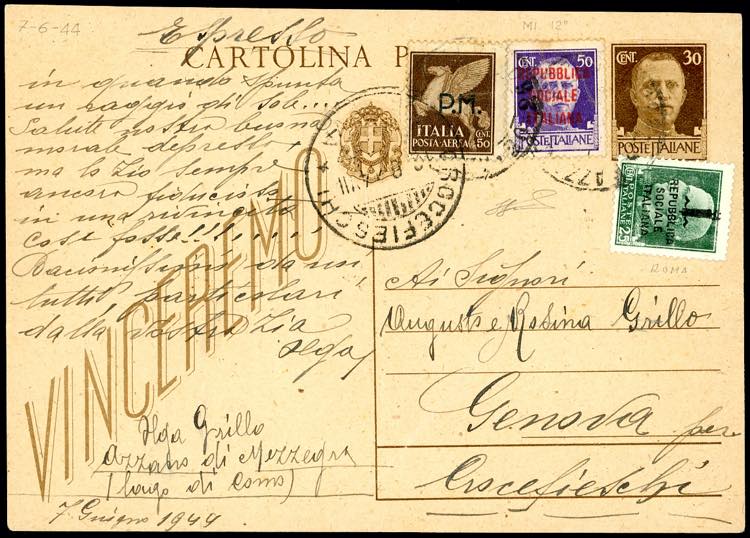 7-6-44
MI 12°
Espresso
CARTOLINA P
in quando spunta
un raggio di sol...
Salute nostra buona
morale depresso
ma lo Zio sempre
ancora fiducioso
in una rivincita
così fosse!!!.....
Bacionissimi da noi
tutti, particolari
dalla vostra Zia
Ilga
VINCEREMO
Ilga Grillo
Azzano di Mezzegra
(lago di Como)
7 Giugno 1944
P.M.
ITALIA
POSTA-AEREA CENT. 50
CENT. 50
REPUBBLICA
SOCIALE
ITALIANA
POSTE ITALIANE
CENT. 30
POSTE ITALIANE
REPUBBLICA
SOCIALE
ITALIANA
25
CROCEFIESCHI
ROMA
Ai Signori
Augusto e Rosina Grillo
Genova per
Crocefieschi